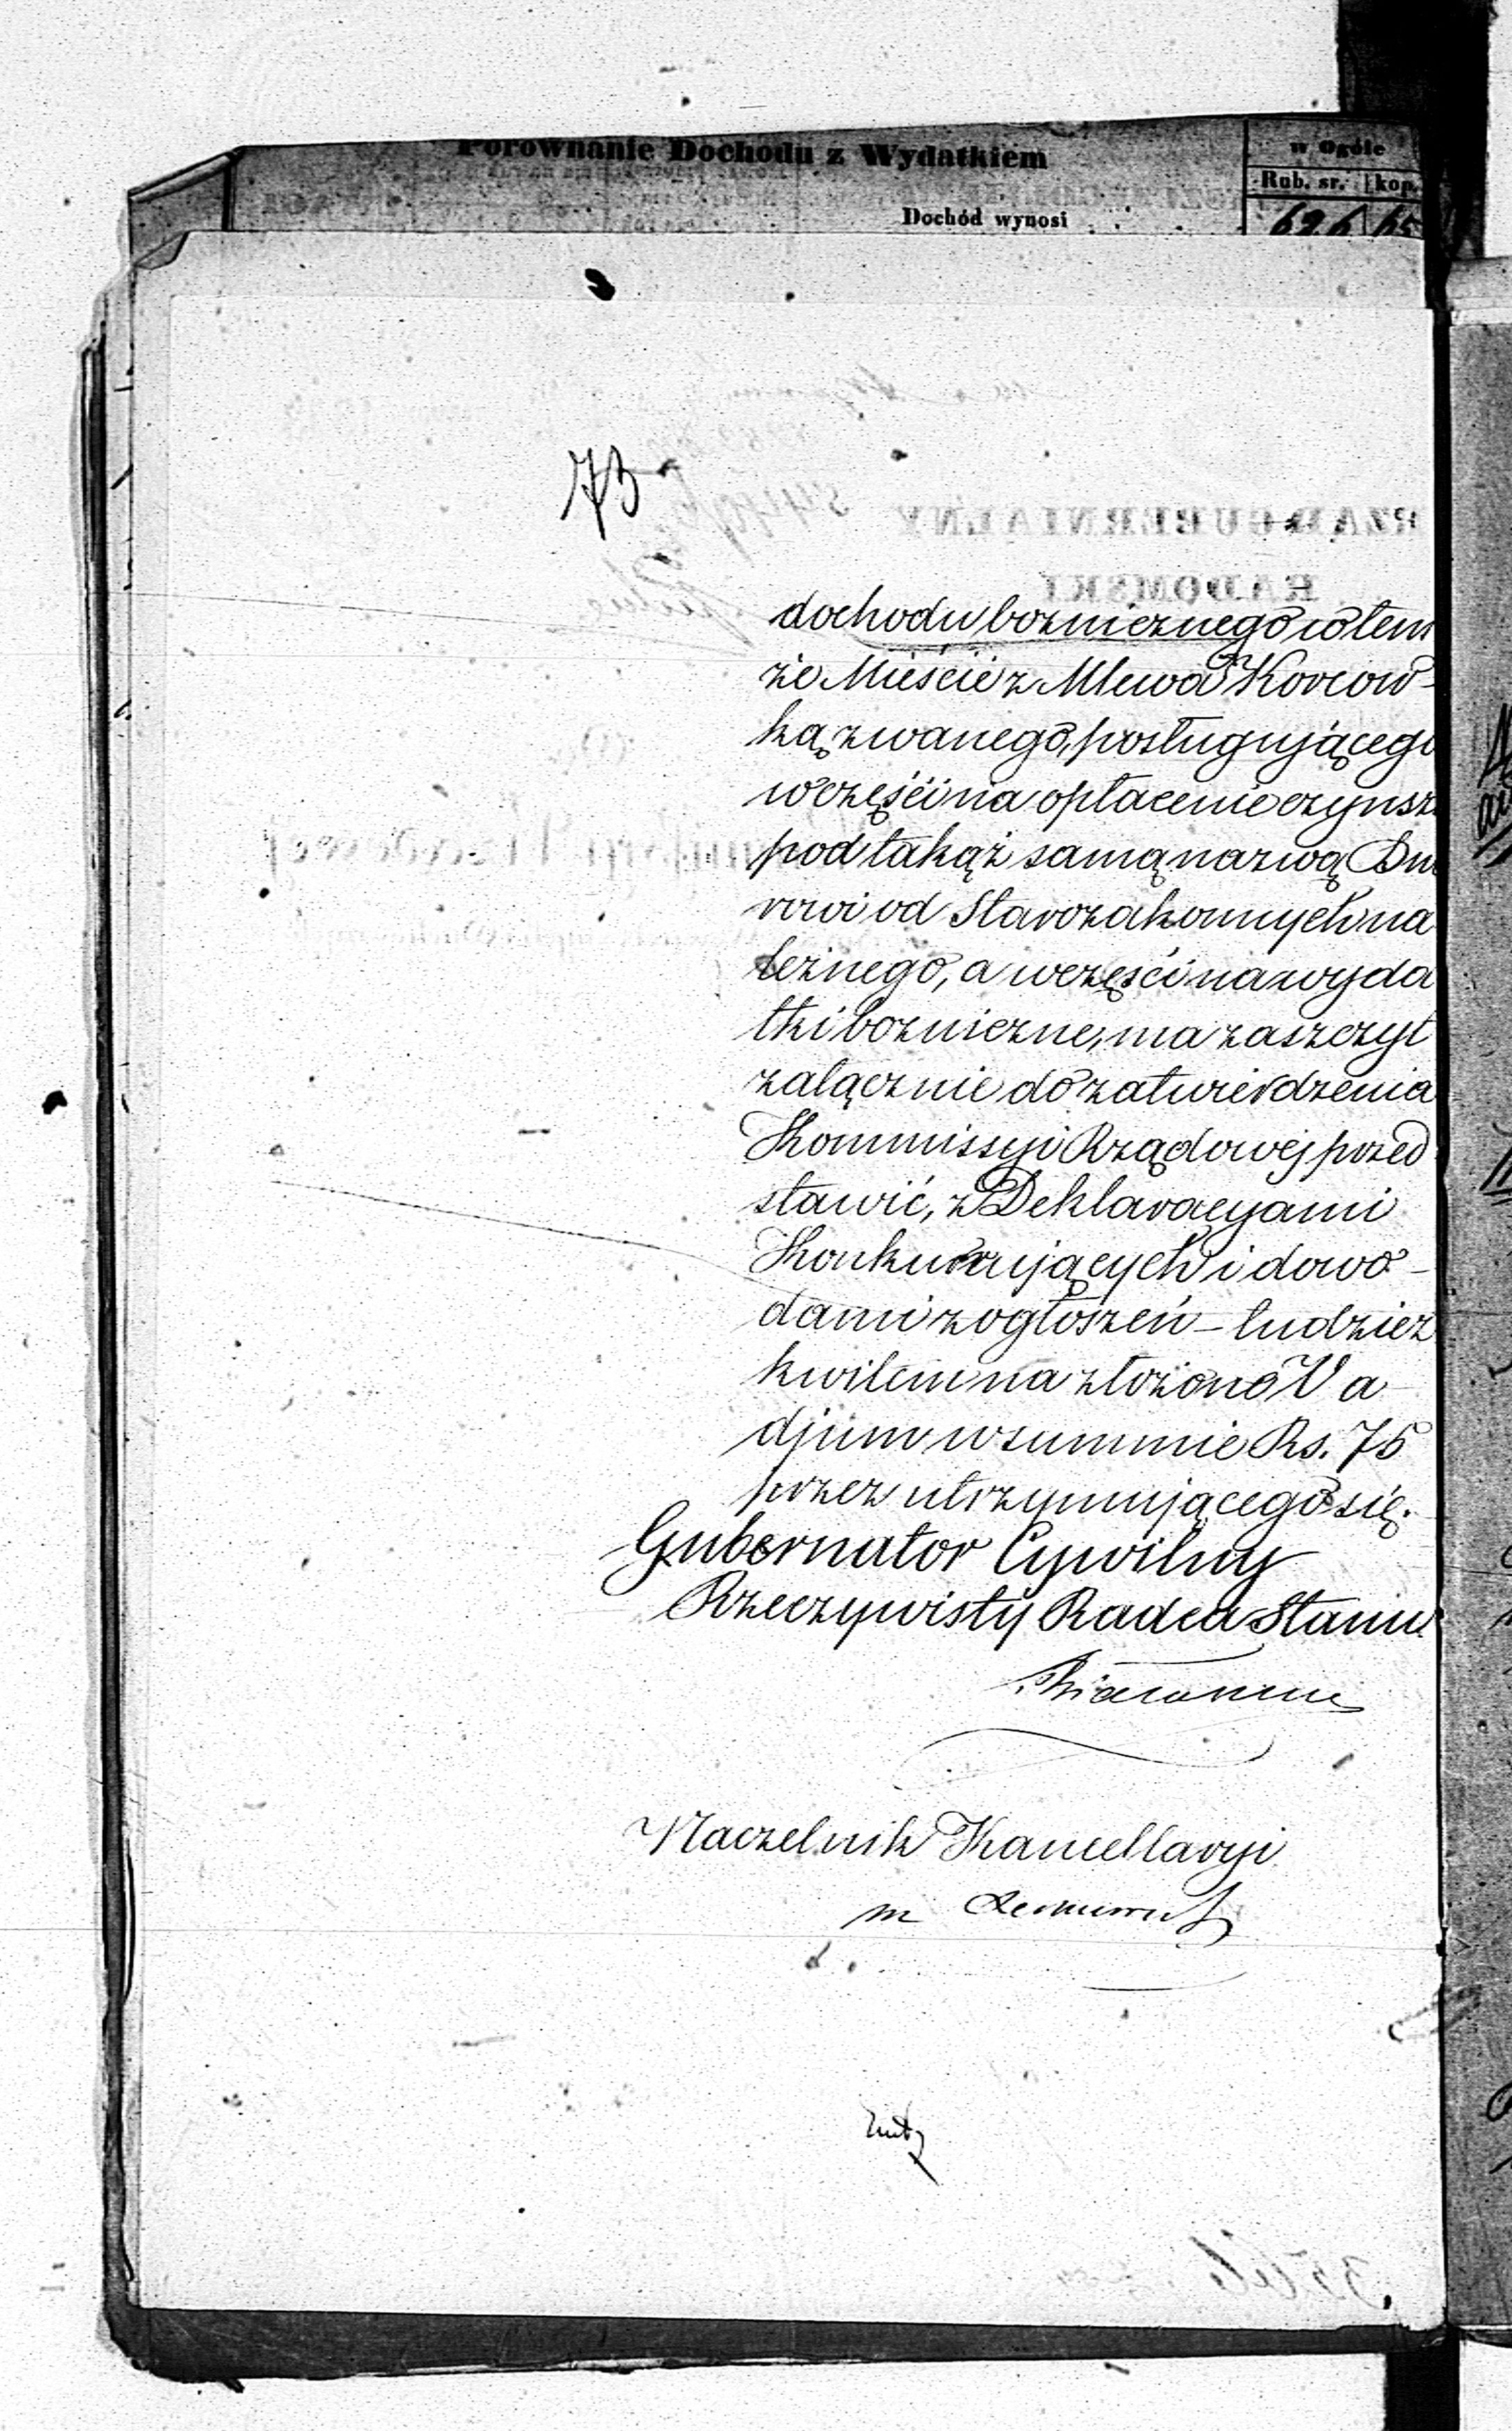 Porównanie Dochodu z Wydatkiem
w Ogóle
Rub. sr. kop.
Dochód wynosi
626 65
73
dochodu bozniczego w tem
że Mieście z Mlewa Korcow-
ką zwanego, posługującego
w części na opłacenie czynsz
pod takąż samą nazwą Dwo
rowi od Starozakonnych na
leżnego, a w części na wyda
tki bozniczne, ma zaszczyt
załącznie do zatwierdzenia
Kommissyi Rządowej przed
stawić, z Deklaracyami
Konkurujących i dowo-
dami z ogłoszeń – tudzież
kwitem na złożone Va
djum w summie Rs. 75
przez utrzymującego się.
Gubernator Cywilny
Rzeczywisty Radca Stanu
Białoskurski
Naczelnik Kancellaryi